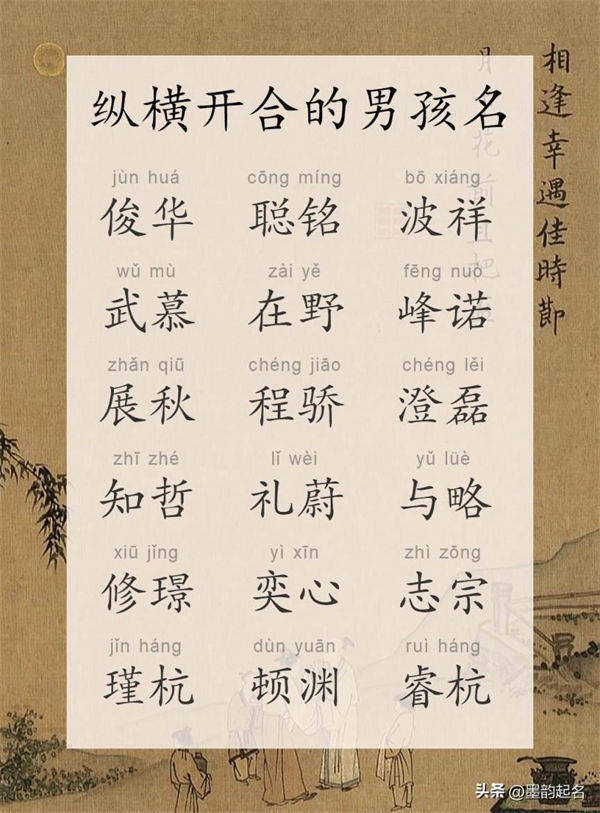 纵横开合的男孩名
jùn huá cōng míng bō xiáng
俊华 聪铭 波祥
wǔ mù zài yě fēng nuò
武慕 在野 峰诺
zhǎn qiū chéng jiāo chéng lěi
展秋 程骄 澄磊
zhī zhé lǐ wèi yǔ lüè
知哲 礼蔚 与略
xiū jǐng yì xīn zhì zōng
修璟 奕心 志宗
jǐn háng dùn yuān ruì háng
瑾杭 顿渊 睿杭
相逢幸遇佳時節
月 花前且把
头条 @墨韵起名